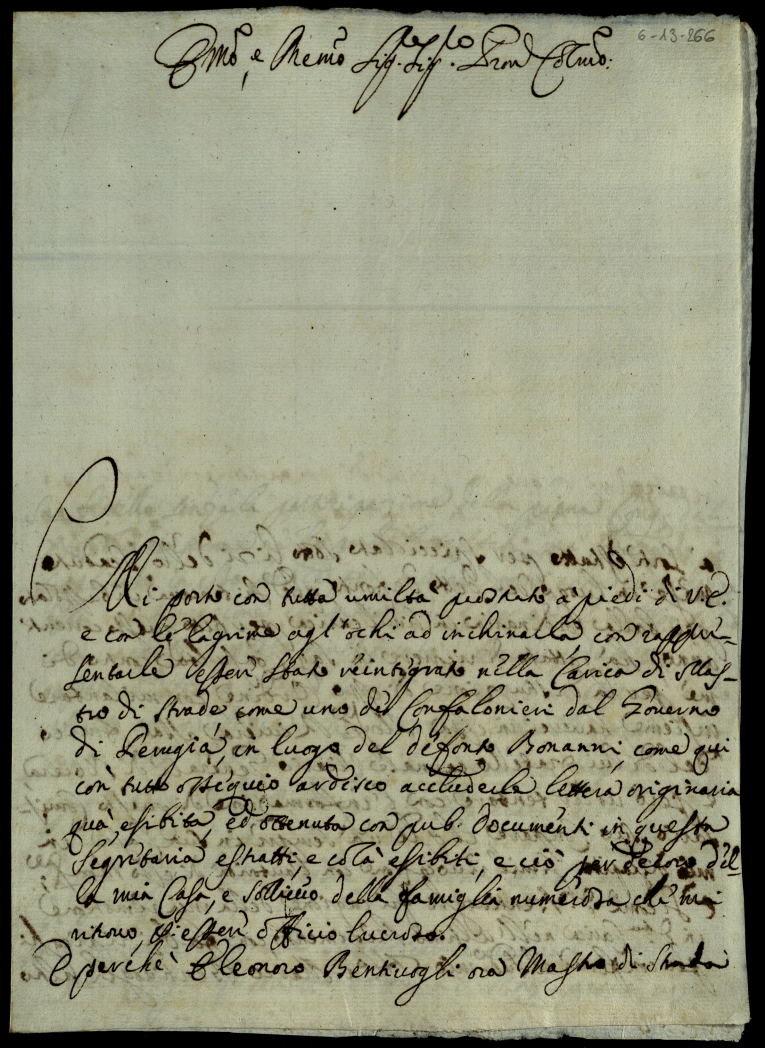 6-13-266
Emo, e Remo Sig. Sig. Pron Colmo:
Mi porto con tutta umiltà prostrato a' piedi di V. E.
e con le lagrime agl'ochi ad inchinalla, con rappre-
sentarle esser stato reintegrato nella Carica di Mas-
tro di Strade come uno de Confalonieri dal Governo
di Perugia, in luogo del defonto Bonanni, come qui
con tutto ossequio ardisco accluderle lettera originaria
quà esibita, ed ottenuta con pub. documenti in questa
Segretaria estratti, e colà esibiti, e ciò per decoro del-
la mia Casa, e sollievo della famiglia numerosa che mi
ritrovo, esser officio lucroso.
E perchè Eleonoro Bentivogli ora Mastro di Strada